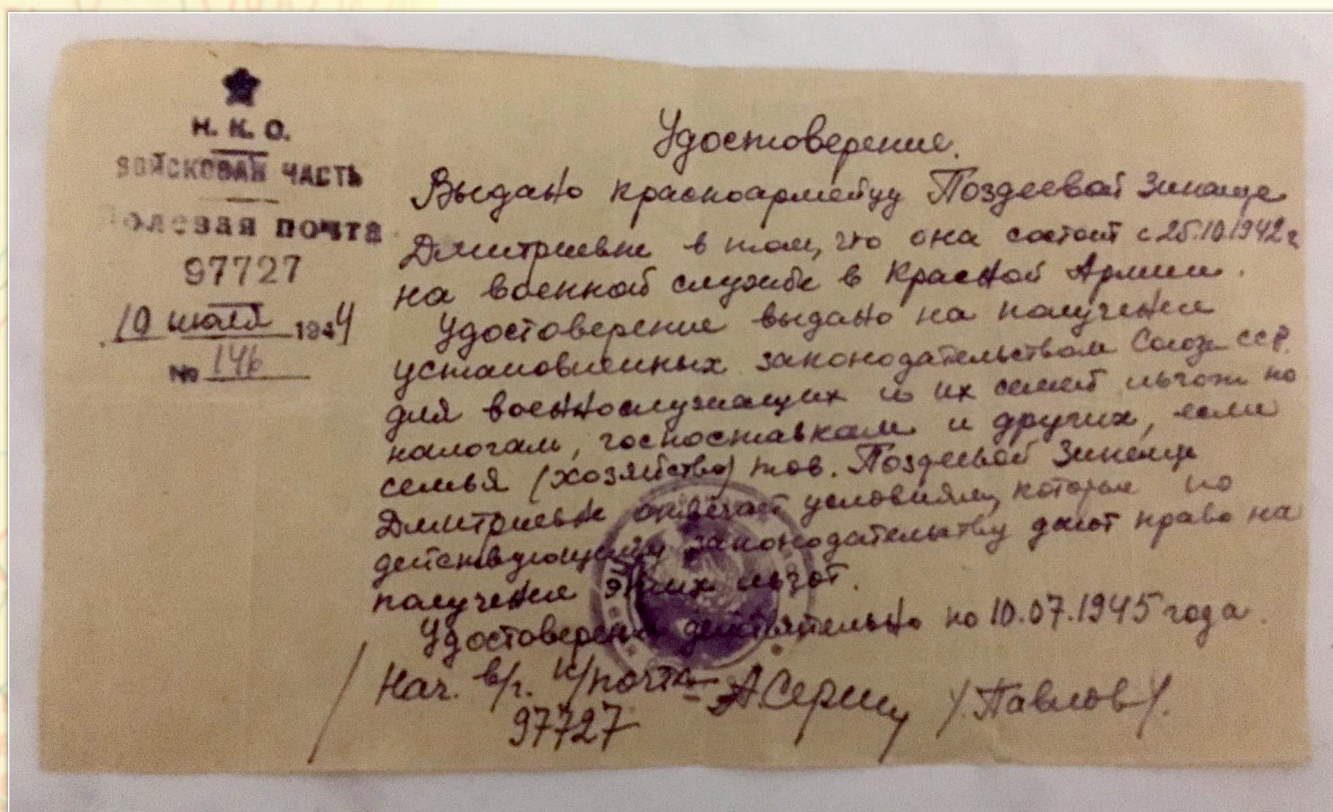 Н. К. О.
ВОЙСКОВАЯ ЧАСТЬ
Полевая почта
97727
10 июля 1944
№ 146
Удостоверение.
Выдано красноармейцу Поздеевой Зинаиде
Дмитриевне в том, что она состоит с 25.10.1942 г.
на военной службе в Красной Армии.
Удостоверение выдано на получение
установленных законодательством Союза ССР.
для военнослужащих и их семей льгот по
налогам, госпоставкам и других, если
семья (хозяйство) тов. Поздеевой Зинаиды
Дмитриевне отвечает условиям, которые по
действующему законодательству дают право на
получение этих льгот.
Удостоверение действительно по 10.07.1945 года.
Нач. в/ч. п/почта - /Павлов/.
97727